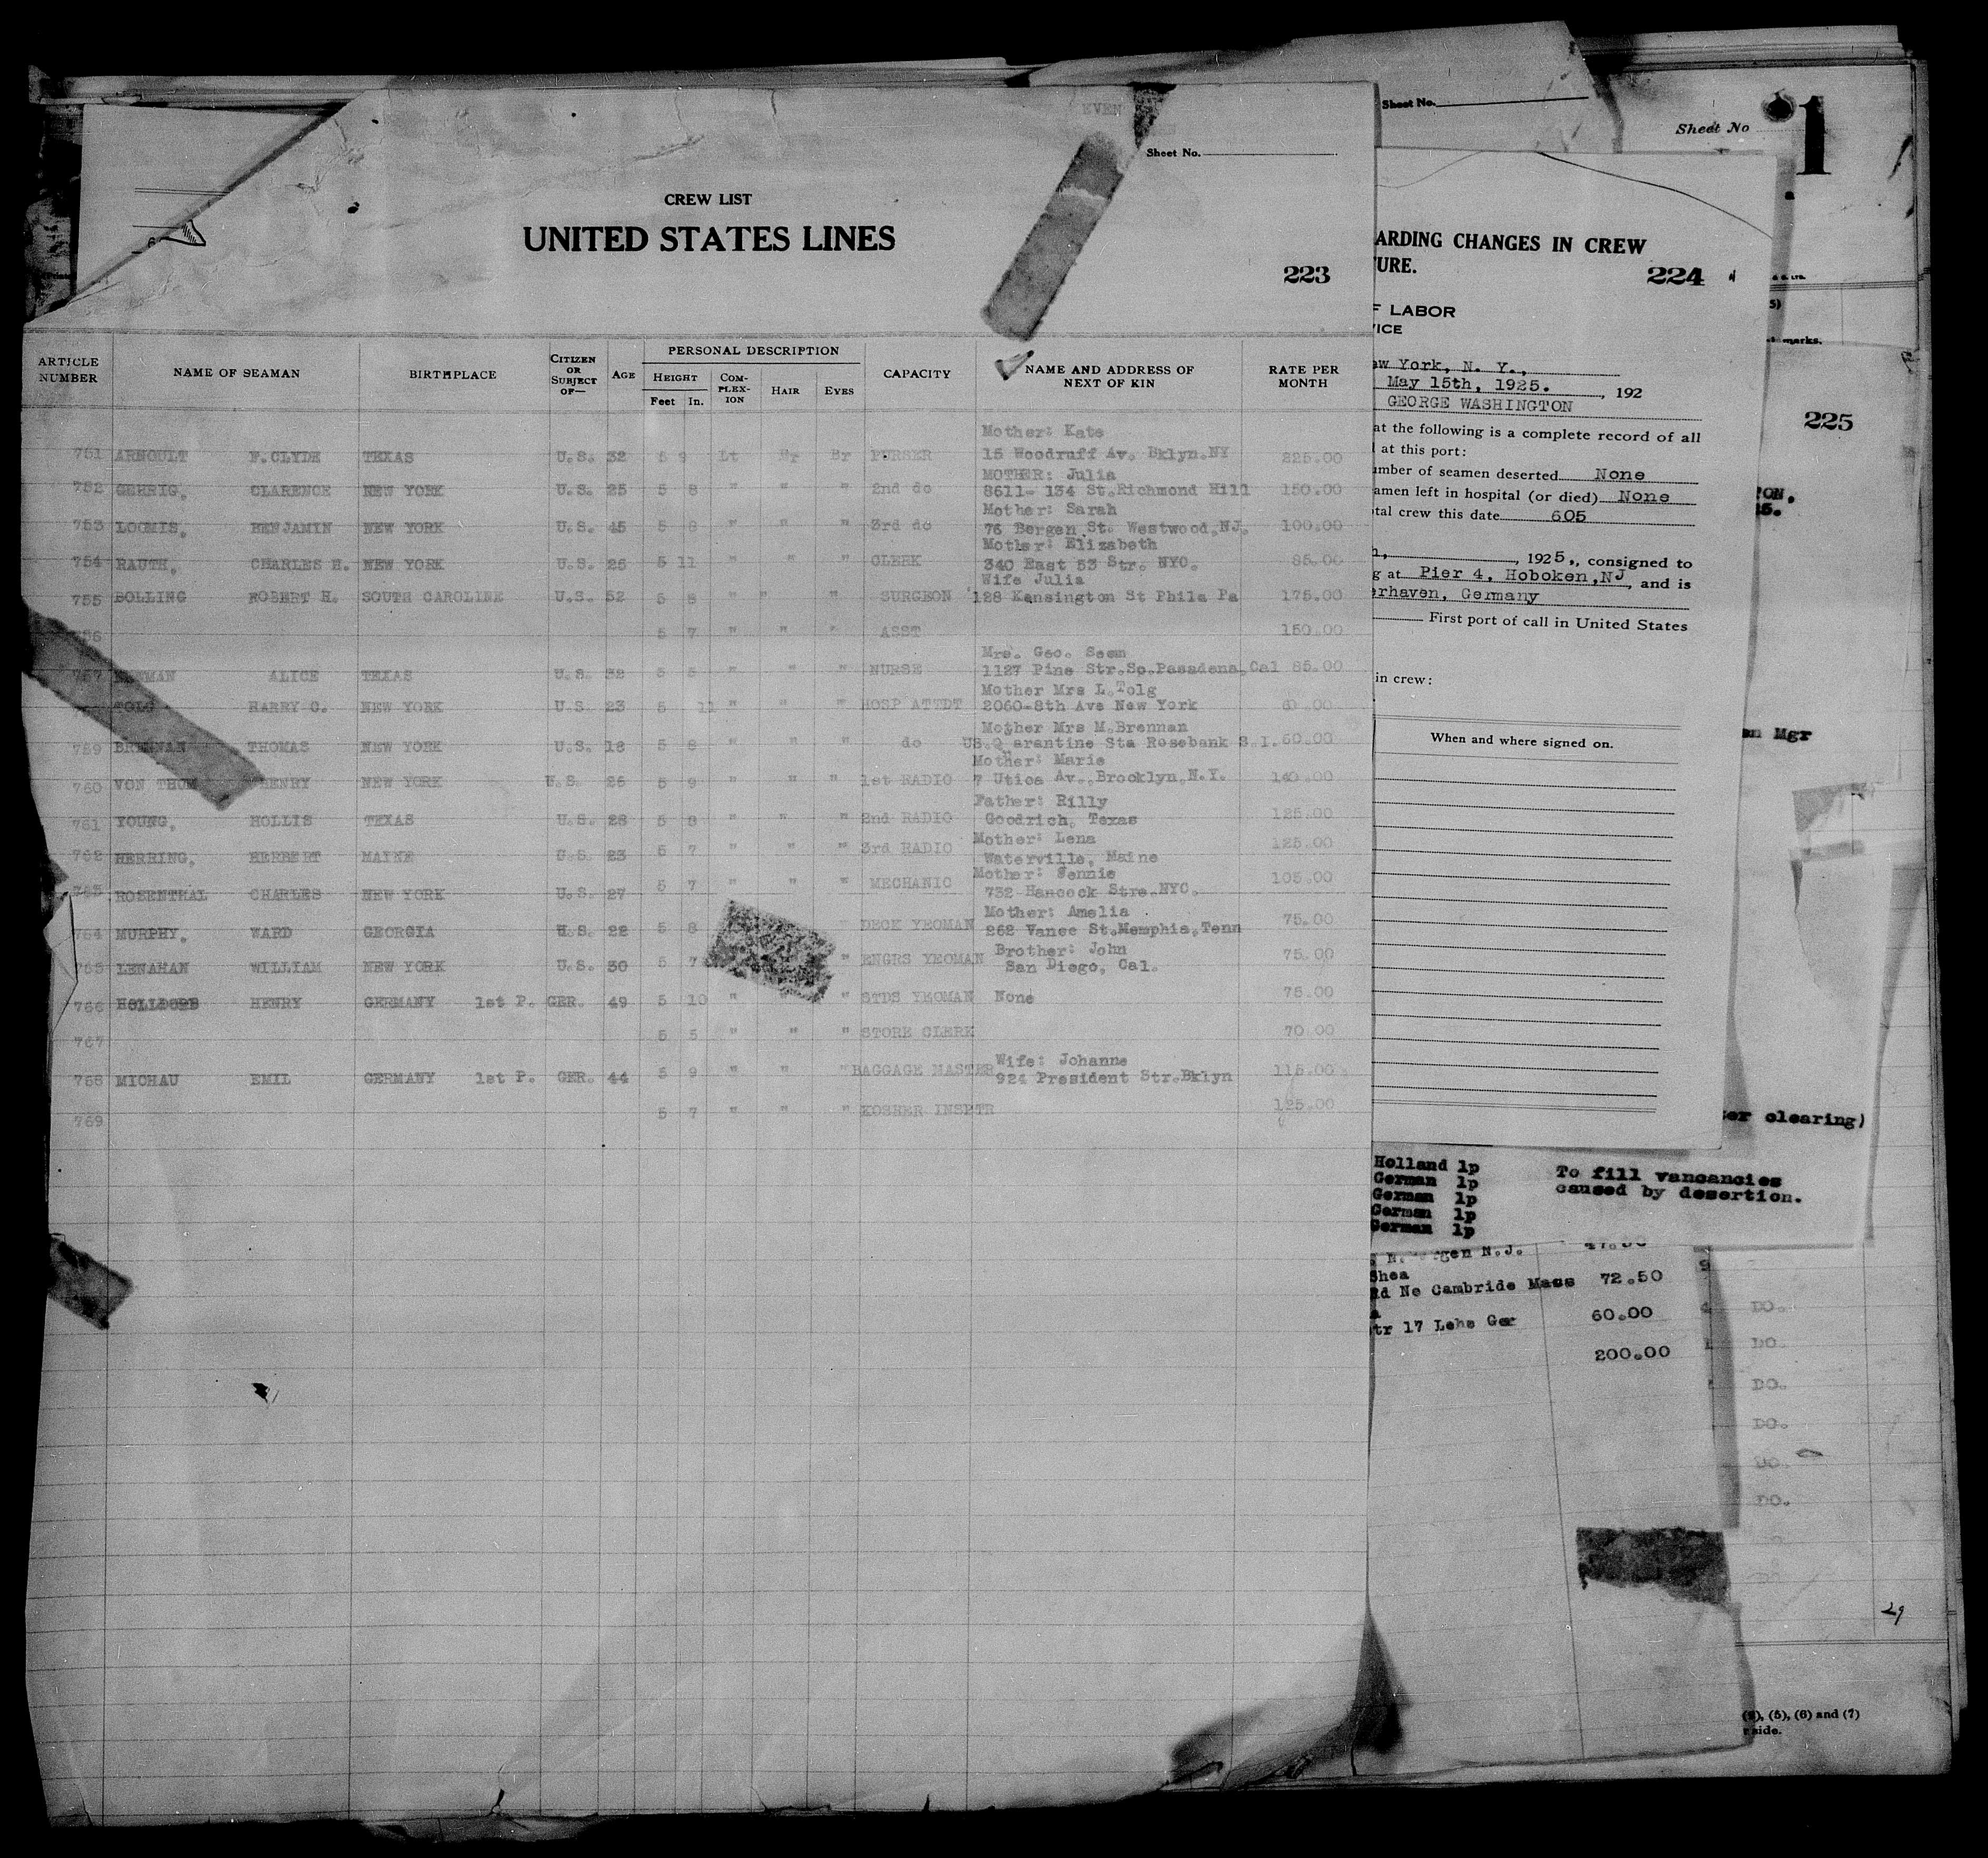 EVEN
Sheet No.
CREW LIST
UNITED STATES LINES
223
ARTICLE NUMBER NAME OF SEAMAN BIRTHPLACE CITIZEN OR SUBJECT OF— AGE PERSONAL DESCRIPTION CAPACITY NAME AND ADDRESS OF NEXT OF KIN RATE PER MONTH
HEIGHT COM-PLEX-ION HAIR EYES
Feet In.
Mother: Kate
751 ARNOULT F. CLYDE TEXAS U.S. 32 5 9 Lt Br Br PURSER 15 Woodruff Av. Bklyn.NY 225.00
MOTHER: Julia
752 GEHRIG, CLARENCE NEW YORK U.S. 25 5 8 " " " 2nd do 8611- 134 St.Richmond Hill 150.00
Mother: Sarah
753 LOOMIS, BENJAMIN NEW YORK U.S. 45 5 8 " " " 3rd do 76 Bergen St. Westwood,NJ. 100.00
Mother: Elizabeth
754 RAUTH, CHARLES H. NEW YORK U.S. 25 5 11 " " " CLERK 340 East 53 Str. NYC. 85.00
Wife Julia
755 BOLLING ROBERT H. SOUTH CAROLINE U.S. 52 5 8 " " " SURGEON 128 Kensington St Phila Pa 175.00
5 7 " " " ASST 150.00
Mrs. Geo. Seem
ALICE TEXAS U.S. 32 5 5 " " " NURSE 1127 Pine Str.So.Pasadena,Cal 85.00
Mother Mrs L.Tolg
TOLG HARRY C. NEW YORK U.S. 23 5 11 " " " HOSP ATTDT 2060-8th Ave New York 60.00
Mother Mrs M.Brennan
759 BRENNAN THOMAS NEW YORK U.S. 18 5 8 " " " do US.Q arantine Sta Rosebank S.I. 60.00
Mother: Marie
760 VON THUM HENRY NEW YORK U.S. 26 5 9 " " " 1st RADIO 7 Utica Av.,Brooklyn,N.Y. 140.00
Father: Rilly
761 YOUNG, HOLLIS TEXAS U.S. 28 5 8 " " " 2nd RADIO Goodrich, Texas 125.00
Mother: Lena
762 HERRING, HERBERT MAINE U.S. 23 5 7 " " " 3rd RADIO Waterville, Maine 125.00
Mother: Jennie
763 ROSENTHAL CHARLES NEW YORK U.S. 27 5 7 " " " MECHANIC 732 Hancock Stre.NYC. 105.00
Mother: Amelia
764 MURPHY, WARD GEORGIA U.S. 22 5 8 " DECK YEOMAN 262 Vance St.Memphis,Tenn 75.00
Brother: John
765 LENAHAN WILLIAM NEW YORK U.S. 30 5 7 " ENGRS YEOMAN San Diego, Cal. 75.00
766 HOLLDORB HENRY GERMANY 1st P. GER. 49 5 10 " " " STDS YEOMAN None 75.00
767 5 5 " " " STORE CLERK 70.00
Wife: Johanne
768 MICHAU EMIL GERMANY 1st P. GER. 44 5 9 " " " BAGGAGE MASTER 924 President Str.Bklyn 115.00
769 5 7 " " " KOSHER INSPTR 125.00
Sheet No.
ARDING CHANGES IN CREW
URE.
224
F LABOR
ICE
ew York, N. Y.,
May 15th, 1925. , 192
GEORGE WASHINGTON
at the following is a complete record of all
at this port:
umber of seamen deserted None
amen left in hospital (or died) None
tal crew this date 605
, 1925., consigned to
g at Pier 4, Hoboken,NJ, and is
erhaven, Germany
First port of call in United States
in crew:
When and where signed on.
Sheet No 1
marks.
225
TON.
25.
Mgr
er clearing)
Holland 1p To fill vancancies
German 1p caused by desertion.
German 1p
German 1p
German 1p
gen N.J. 47.50
Shea
Rd No Cambride Mass 72.50
tr 17 Lehe Ger 60.00
200.00
DO.
DO.
DO.
DO.
DO.
DO.
29
(5), (6) and (7)
side.